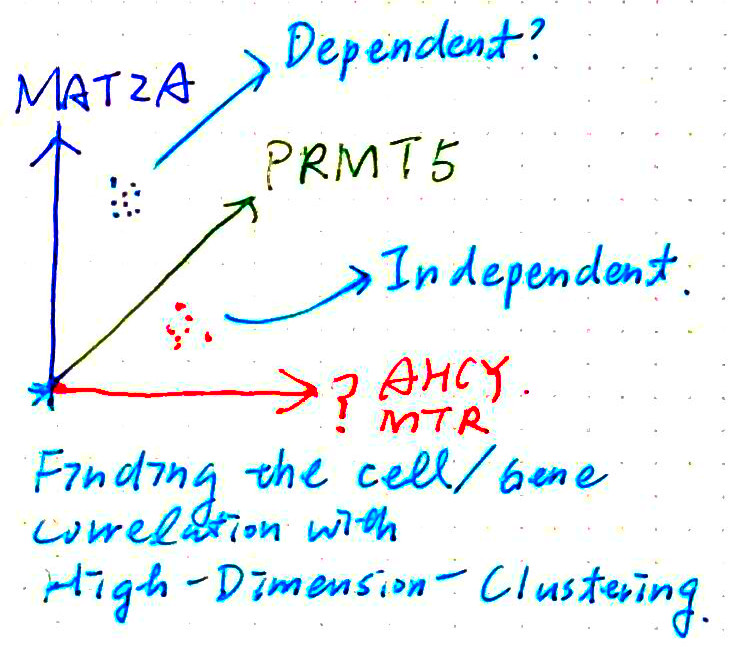 Dependent?
MAT2A
PRMT5
Independent.
? AHCY
MTR
Finding the cell/gene
correlation with
High-Dimension-Clustering.